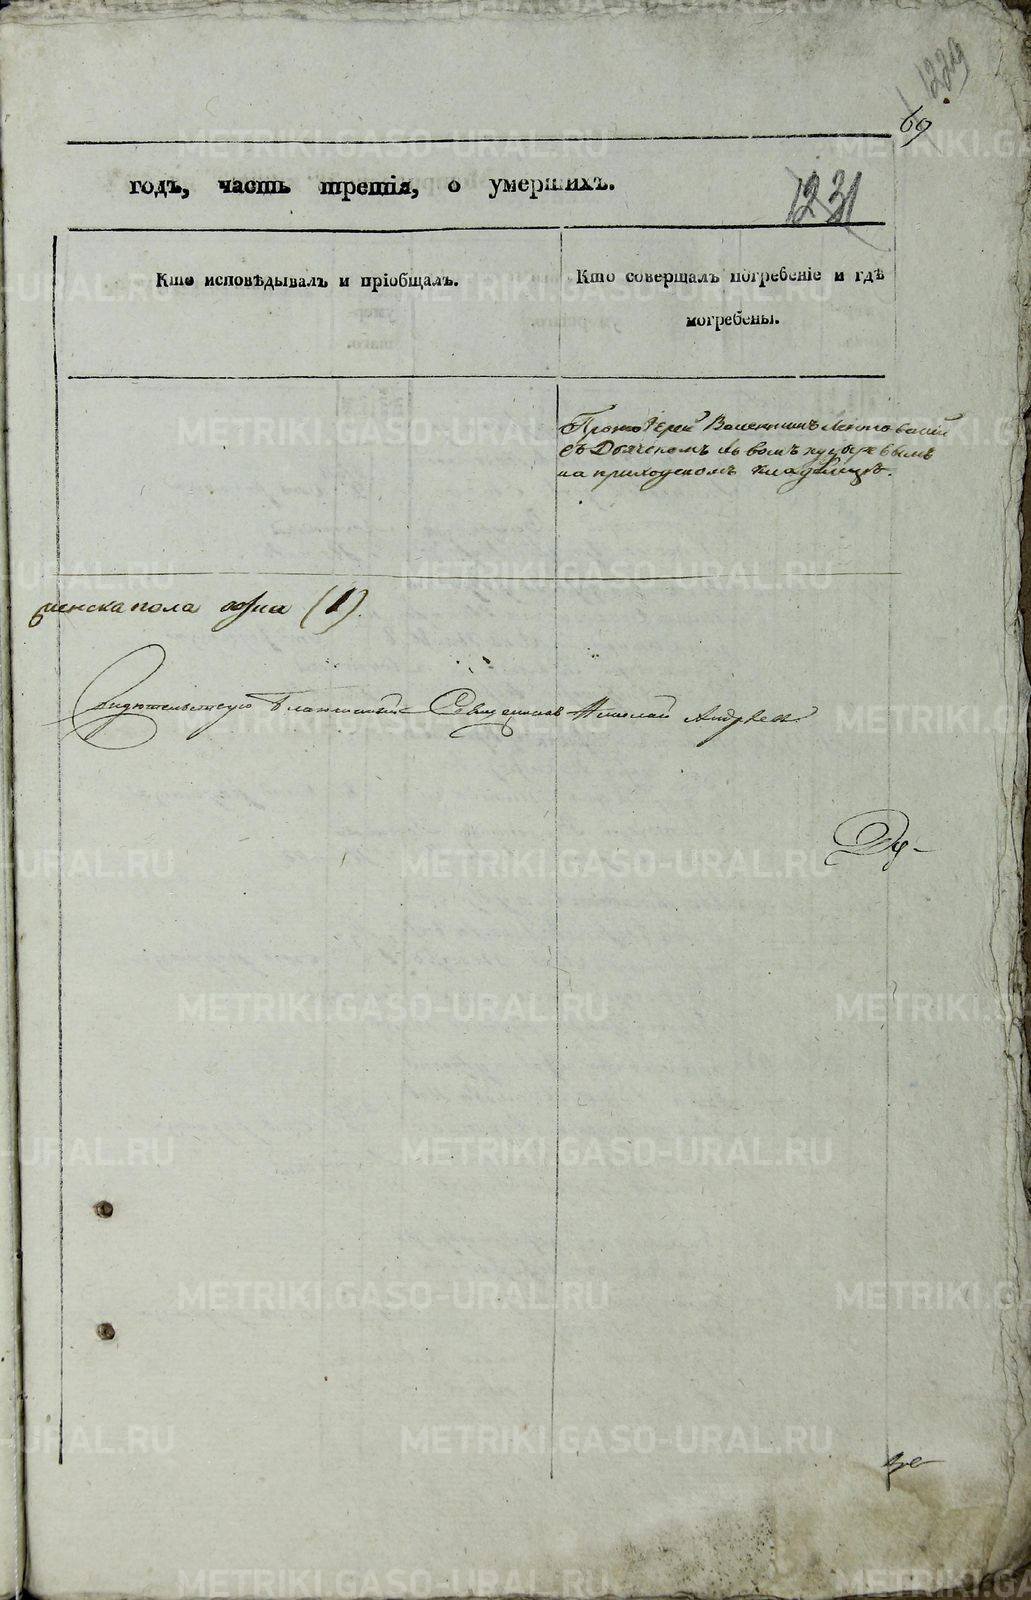 1229
69
годъ, часть третія, о умершихъ.
1231
Кто исповѣдывалъ и пріобщалъ.
Кто совершалъ погребеніе и гдѣ
погребены.
Протоіерей Валентинъ
съ Дьячкомъ Львомъ
на приходскомъ кладбищѣ.
женска пола одна (1).
Свидѣтельствую Благочинный Священникъ Николай Андреевъ
METRIKI.GASO-URAL.RU